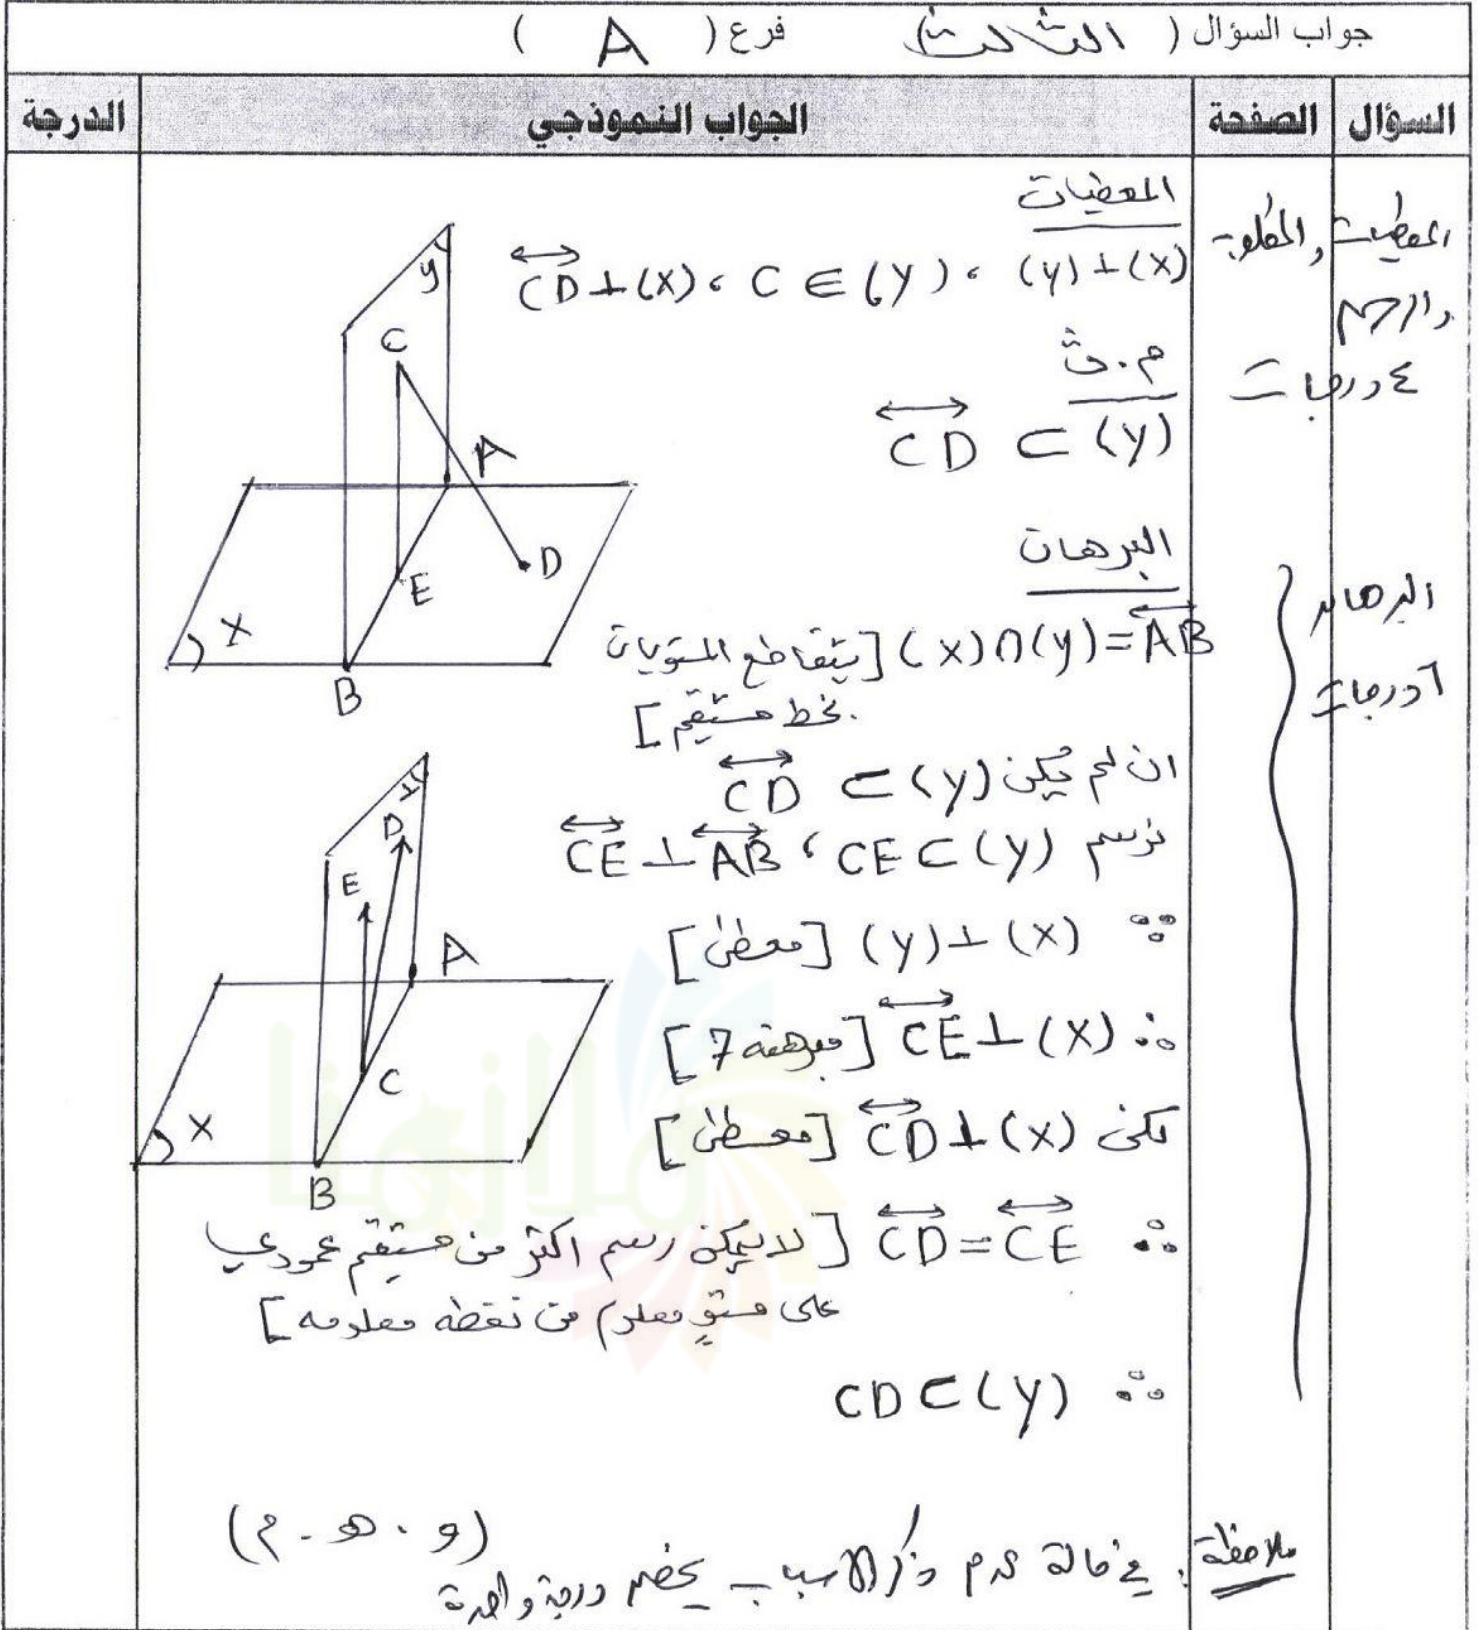 جواب السؤال ( الثالث ) فرع ( A )
السؤال الصفحة الجواب النموذجي الدرجة
المعطيات والمطلوب
والرسم
٤ درجات
المعطيات
(Y)⊥(X) ، C ∈ (Y) ، CD⊥(X)
م.ث
CD ⊂ (Y)
البرهان
٦ درجات
البرهان
(X)∩(Y)=AB [يتقاطع المستويان
بخط مستقيم]
ان لم يكن CD ⊂ (Y)
نرسم CE⊂(Y) ، CE⊥AB
∵ (Y)⊥(X) [معطى]
∴ CE⊥(X) [مبرهنة 7]
لكن CD⊥(X) [معطى]
∴ CD=CE [لا يمكن رسم اكثر من مستقيم عمودي
على مستوٍ معلوم من نقطه معلومه]
∴ CD⊂(Y)
(و . هـ . م)
ملاحظة: في حالة عدم ذكر الاسباب يخصم درجة واحدة
y
C
A
E
D
X
B
y
D
E
A
C
X
B
ملازمنا